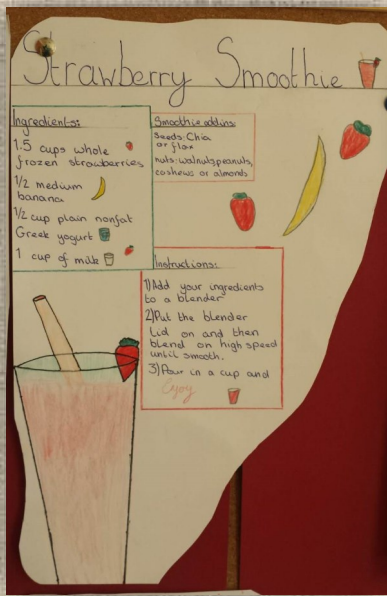 Strawberry Smoothie
Ingredients:
1.5 cups whole
frozen strawberries
1/2 medium
banana
1/2 cup plain nonfat
Greek yogurt
1 cup of milk
Smoothie addins:
seeds: Chia
or flax
nuts: walnuts, peanuts,
cashews or almonds
Instructions:
1) Add your ingredients
to a blender
2) Put the blender
lid on and then
blend on high speed
until smooth.
3) Pour in a cup and